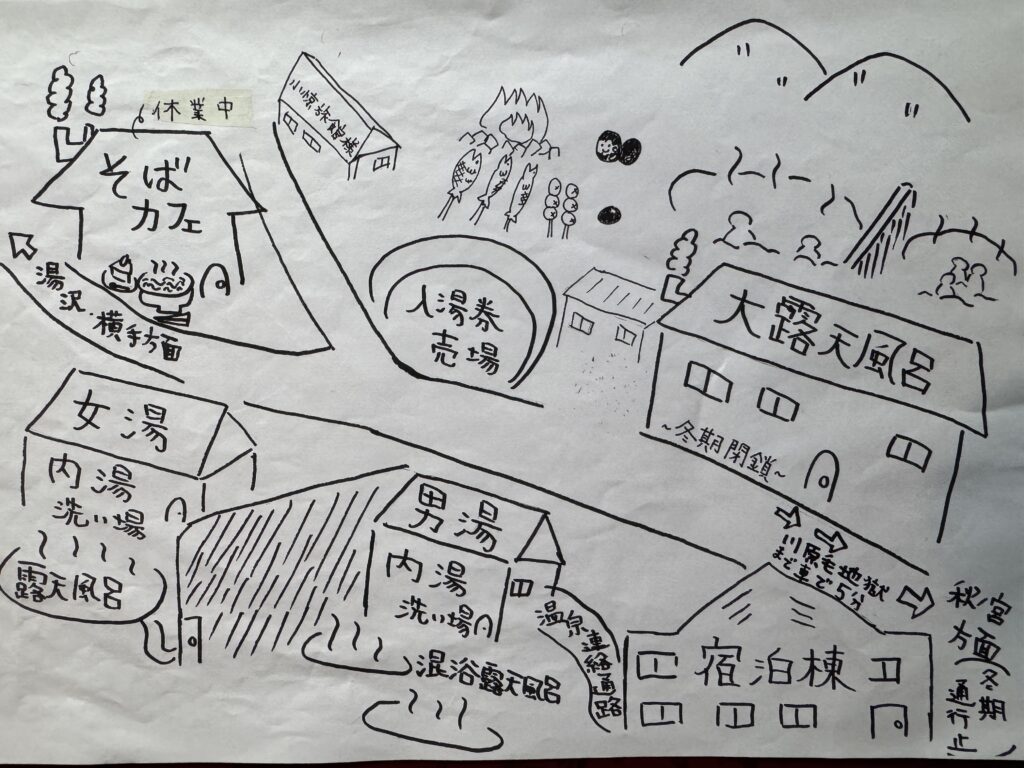 休業中
そば
カフェ
湯沢・横手方面
入湯券
売場
大露天風呂
~冬期閉鎖~
女湯
内湯
洗い場
露天風呂
男湯
内湯
洗い場
混浴露天風呂
温泉連絡通路
宿泊棟
川原毛地獄
まで車で5分
秋ノ宮
方面
冬期
通行止